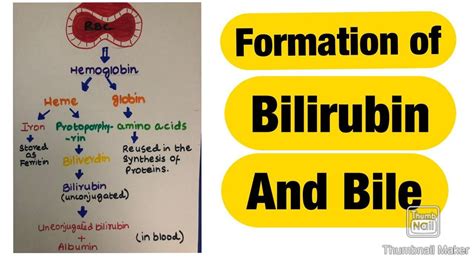 RBC
Hemoglobin
Heme globin
Iron Protoporphy- amino acids
-rin
Stored
as
Ferritin
Reused in the
Synthesis of
Proteins.
Biliverdin
Bilirubin
(unconjugated)
Unconjugated bilirubin
+ (in blood)
Albumin
Formation of
Bilirubin
And Bile
Thumb
Nail
Thumbnail Maker